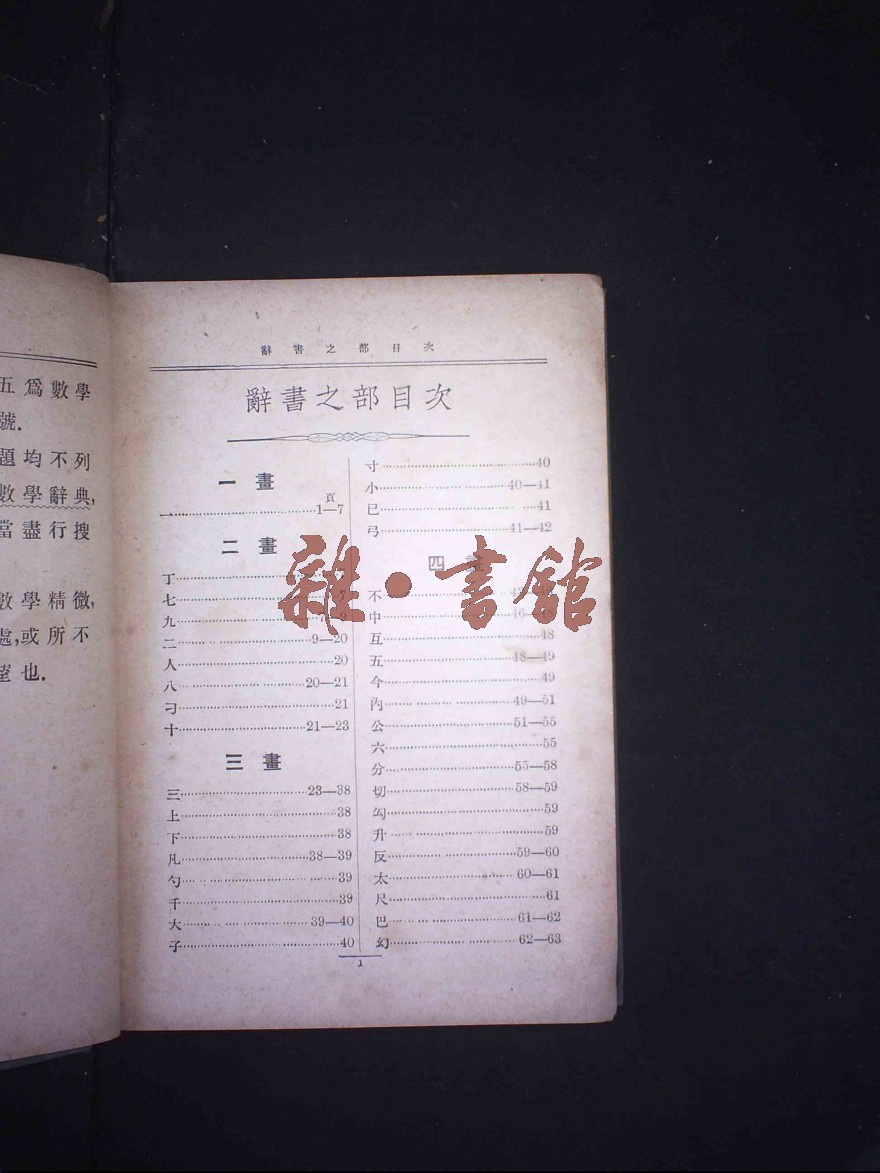 五爲數學
號.
題均不列
數學辭典,
當盡行搜
數學精微,
處,或所不
望也.
辭書之部目次
辭書之部目次
一畫
頁
一……1—7
二畫
丁……
七……7
九……7—9
二……9—20
人……20
八……20—21
刁……21
十……21—23
三畫
三……23—38
上……38
下……38
凡……38—39
勺……39
千……39
大……39—40
子……40
寸……40
小……40—41
已……41
弓……41—42
四畫
不……
中……46—48
互……48
五……48—49
今……49
內……49—51
公……51—55
六……55
分……55—58
切……58—59
勾……59
升……59
反……59—60
太……60—61
尺……61
巴……61—62
幻……62—63
1
雜·書館